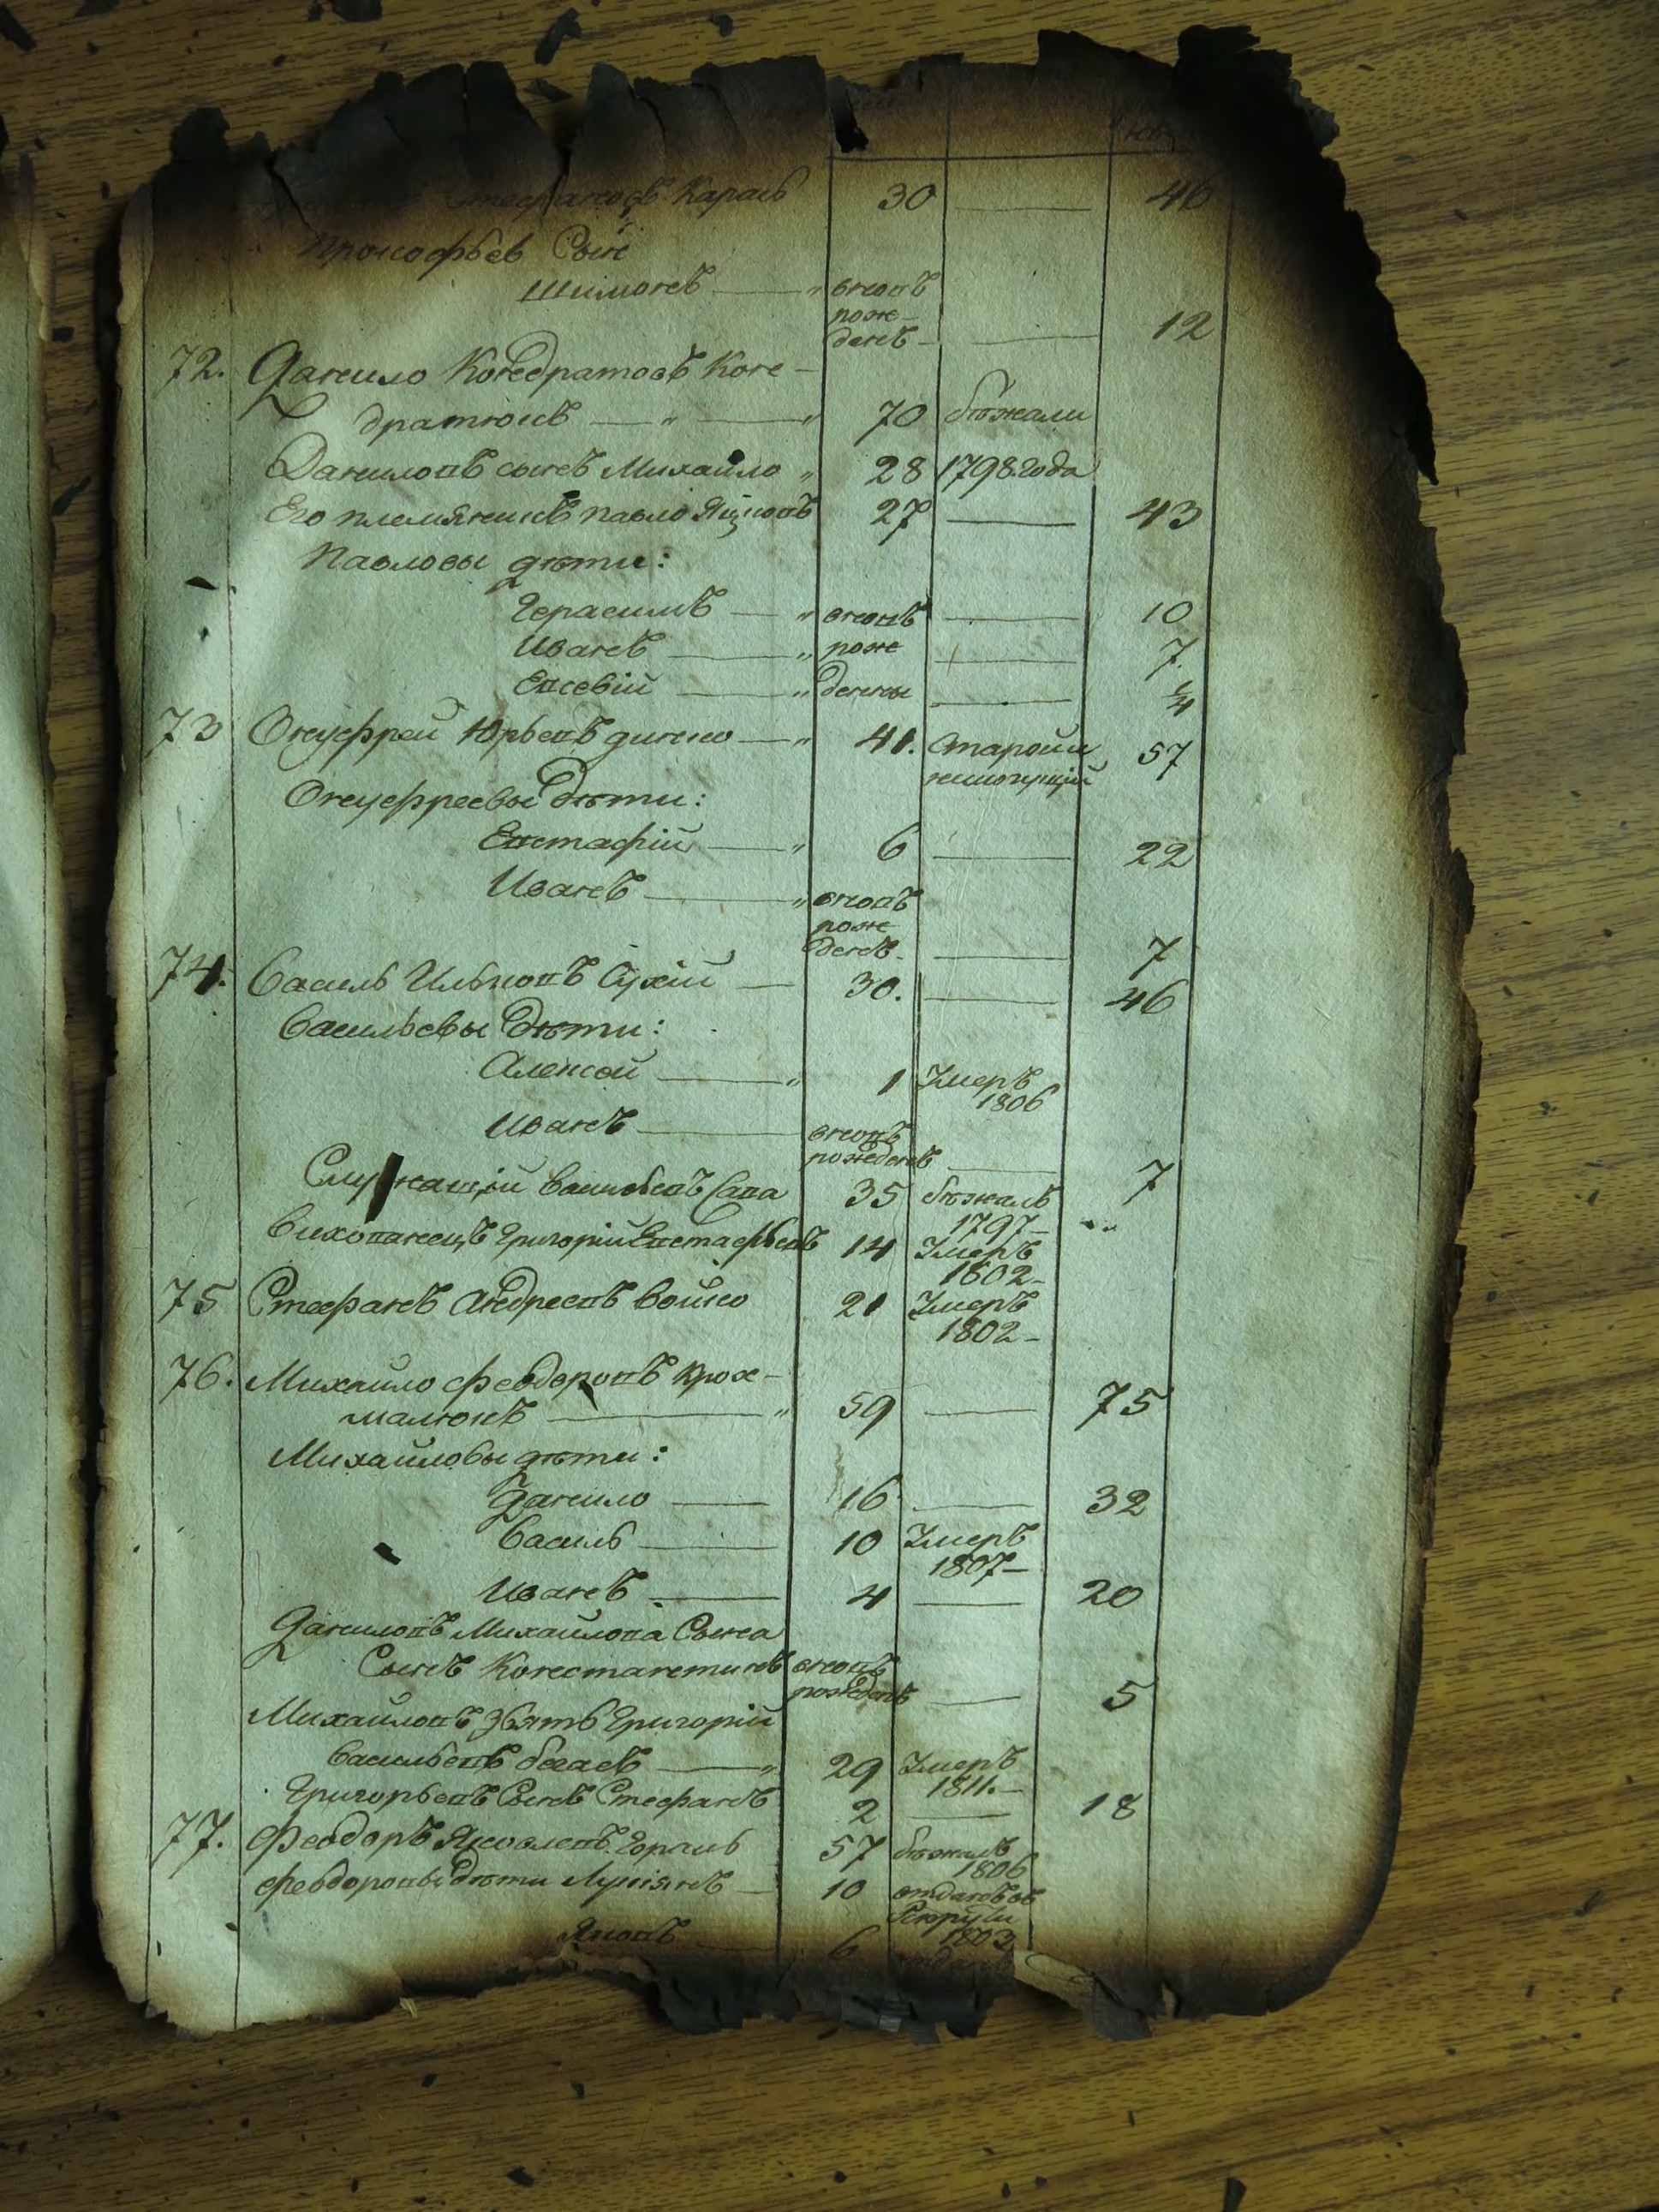 Стефановъ Карась 30 — 46
Прокофьев Сын
Шимонъ — вновъ
рож-
денъ — 12
72. Данило Кондратовъ Кон-
дратюкъ — 70 бѣжали
Даниловъ сынъ Михайло 28 1798 года
Его племянникъ павло Яцковъ 27 — 43
Павловы дѣти:
Герасимъ — вновъ — 10
Иванъ — рож — 7.
Евсевій — дены — 1/4
73 Онуфрей Юрьевъ дитко — 41. Старой и 57
Онуфреевы дѣти:
Евстафій — 6 — 22
Иванъ — вновъ
рож
денъ — 7
74. Василь Ильковъ Сухій — 30. — 46
Васильевы дѣти:
Алексѣй — 1 Умеръ
1806
Иванъ — вновъ
рожденъ — 7
Служащій Сава 35 бѣжалъ
1797 —
Вихованецъ Григорій Евстафьевъ 14 Умеръ
1802 —
75 Стефанъ Андреевъ войтко 21 Умеръ
1802 —
76. Михайло Феодоровъ Крох-
малюкъ — 59 — 75
Михайловы дѣти:
Данило — 16 — 32
Василь — 10 Умеръ
1807 —
Иванъ — 4 — 20
Даниловъ Михайлова Сына
Сынъ Константинъ вновъ
рожденъ — 5
Михайловъ Зять Григорій
Васильевъ — 29 Умеръ
1811. —
Григорьевъ Сынъ Стефанъ 2 — 18
77. Феодоръ Яковлевъ Гораль 57 бѣжалъ
1806
Феодоровы дѣти Лукіянъ — 10 отданъ въ
Рекруты
1803
Яковъ — 6 отданъ